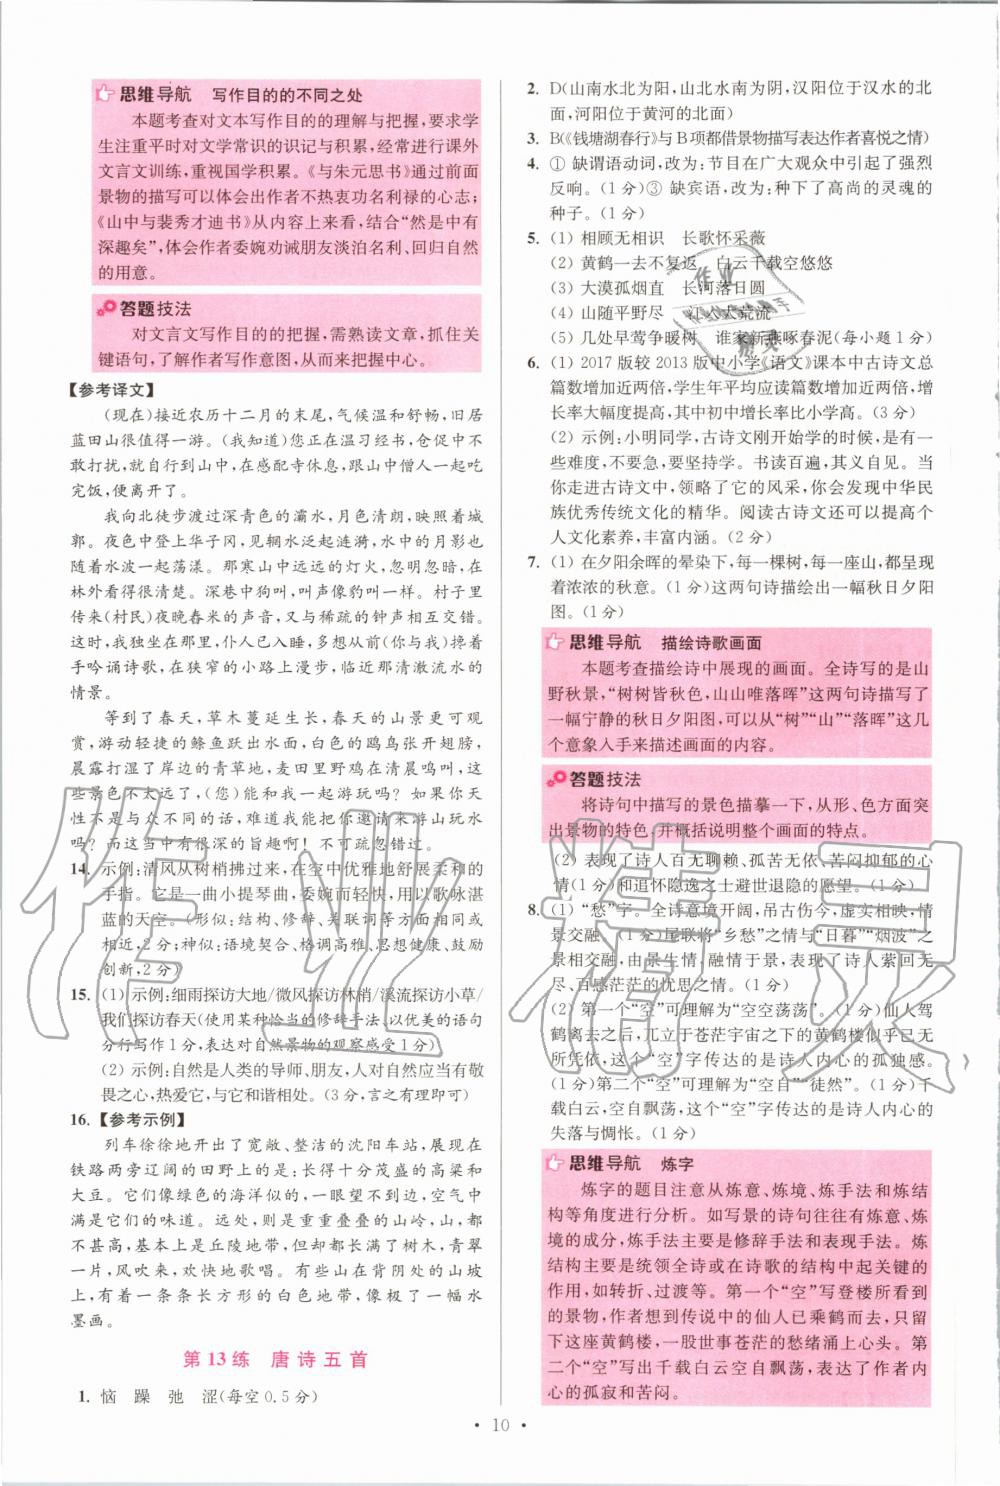 思维导航 写作目的的不同之处
本题考查对文本写作目的的理解与把握,要求学
生注重平时对文学常识的识记与积累,经常进行课外
文言文训练,重视国学积累。《与朱元思书》通过前面
景物的描写可以体会出作者不热衷功名利禄的心志;
《山中与裴秀才迪书》从内容上来看,结合“然是中有
深趣矣”,体会作者委婉劝诫朋友淡泊名利、回归自然
的用意。
答题技法
对文言文写作目的的把握,需熟读文章,抓住关
键语句,了解作者写作意图,从而来把握中心。
【参考译文】
(现在)接近农历十二月的末尾,气候温和舒畅,旧居
蓝田山很值得一游。(我知道)您正在温习经书,仓促中不
敢打扰,就自行到山中,在感配寺休息,跟山中僧人一起吃
完饭,便离开了。
我向北徒步渡过深青色的灞水,月色清朗,映照着城
郭。夜色中登上华子冈,见辋水泛起涟漪,水中的月影也
随着水波一起荡漾。那寒山中远远的灯火,忽明忽暗,在
林外看得很清楚。深巷中狗叫,叫声像豹叫一样。村子里
传来(村民)夜晚舂米的声音,又与稀疏的钟声相互交错。
这时,我独坐在那里,仆人已入睡,多想从前(你与我)搀着
手吟诵诗歌,在狭窄的小路上漫步,临近那清澈流水的
情景。
等到了春天,草木蔓延生长,春天的山景更可观
赏,游动轻捷的鲦鱼跃出水面,白色的鸥鸟张开翅膀,
晨露打湿了岸边的青草地,麦田里野鸡在清晨鸣叫,这
些景色不太远了,(您)能和我一起游玩吗?如果你天
性不是与众不同的话,难道我能邀请来游山玩水
吗?而这当中有很深的旨趣啊!不可疏忽错过。
14. 示例:清风从树梢拂过来,在空中优雅地舒展柔和的
手指。它是一曲小提琴曲,委婉而轻快,用以歌咏湛
蓝的天空。(形似:结构、修辞、关联词等方面相同或
相近,2分;神似:语境契合、格调高雅、思想健康、鼓励
创新,2分)
15. (1) 示例:细雨探访大地/微风探访林梢/溪流探访小草/
我们探访春天(使用某种恰当的修辞手法,以优美的语句
分行写作1分,表达对自然景物的观察感受1分)
(2) 示例:自然是人类的导师、朋友,人对自然应当有敬
畏之心,热爱它,与它和谐相处。(3分,言之有理即可)
16. 【参考示例】
列车徐徐地开出了宽敞、整洁的沈阳车站,展现在
铁路两旁辽阔的田野上的是:长得十分茂盛的高粱和
大豆。它们像绿色的海洋似的,一眼望不到边,空气中
满是它们的味道。远处,则是重重叠叠的山岭,山,都
不甚高,基本上是丘陵地带,但却都长满了树木,青翠
一片,风吹来,欢快地歌唱。有些山在背阴处的山坡
上,有着一条条长方形的白色地带,像极了一幅水
墨画。
第13练 唐诗五首
1. 恼 躁 弛 涩(每空0.5分)
2. D(山南水北为阳,山北水南为阴,汉阳位于汉水的北
面,河阳位于黄河的北面)
3. B(《钱塘湖春行》与B项都借景物描写表达作者喜悦之情)
4. ① 缺谓语动词,改为:节目在广大观众中引起了强烈
反响。(1分)③ 缺宾语,改为:种下了高尚的灵魂的
种子。(1分)
5. (1) 相顾无相识 长歌怀采薇
(2) 黄鹤一去不复返 白云千载空悠悠
(3) 大漠孤烟直 长河落日圆
(4) 山随平野尽 江入大荒流
(5) 几处早莺争暖树 谁家新燕啄春泥(每小题1分)
6. (1) 2017版较2013版中小学《语文》课本中古诗文总
篇数增加近两倍,学生年平均应读篇数增加近两倍,增
长率大幅度提高,其中初中增长率比小学高。(3分)
(2) 示例:小明同学,古诗文刚开始学的时候,是有一
些难度,不要急,要坚持学。书读百遍,其义自见。当
你走进古诗文中,领略了它的风采,你会发现中华民
族优秀传统文化的精华。阅读古诗文还可以提高个
人文化素养,丰富内涵。(2分)
7. (1) 在夕阳余晖的晕染下,每一棵树,每一座山,都呈现
着浓浓的秋意。(1分)这两句诗描绘出一幅秋日夕阳
图。(1分)
思维导航 描绘诗歌画面
本题考查描绘诗中展现的画面。全诗写的是山
野秋景,“树树皆秋色,山山唯落晖”这两句诗描写了
一幅宁静的秋日夕阳图,可以从“树”“山”“落晖”这几
个意象入手来描述画面的内容。
答题技法
将诗句中描写的景色描摹一下,从形、色方面突
出景物的特色,并概括说明整个画面的特点。
(2) 表现了诗人百无聊赖、孤苦无依、苦闷抑郁的心
情(1分)和追怀隐逸之士避世退隐的愿望。(1分)
8. (1) “愁”字。全诗意境开阔,吊古伤今,虚实相映,情
景交融。(1分)尾联将“乡愁”之情与“日暮”“烟波”之
景相交融,由景生情,情寓景中,表现了诗人萦回无
尽、百感茫茫的忧思之情。(1分)
(2) 第一个“空”可理解为“空空荡荡”。(1分)仙人驾
鹤离去之后,兀立于苍茫宇宙之下的黄鹤楼似乎已无
所凭依,这个“空”字传达的是诗人内心的孤独感。
(1分)第二个“空”可理解为“空自”“徒然”。(1分)千
载白云,空自飘荡,这个“空”字传达的是诗人内心的
失落与惆怅。(1分)
思维导航 炼字
炼字的题目注意从炼意、炼境、炼手法和炼结
构等角度进行分析。如写景的诗句往往有炼意、炼
境的成分,炼手法主要是修辞手法和表现手法。炼
结构主要是统领全诗或在诗歌的结构中起关键的
作用,如转折、过渡等。第一个“空”写登楼所看到
的景物,作者想到传说中的仙人已乘鹤而去,只留
下这座黄鹤楼,一股世事苍茫的愁绪涌上心头。第
二个“空”写出千载白云空自飘荡,表达了诗人内
心的孤寂和苦闷。
• 10 •